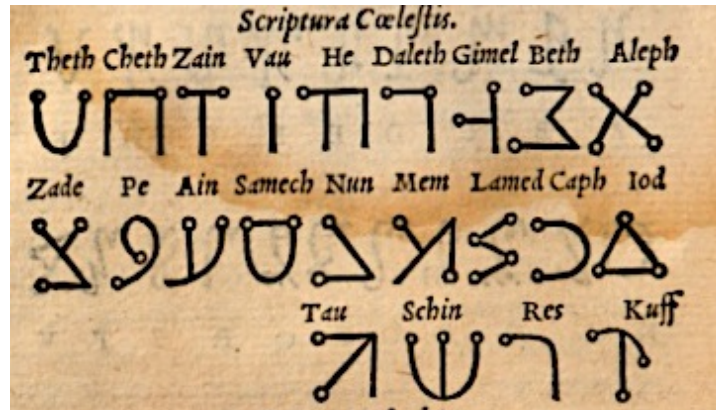 Scriptura Cœlestis.
Theth Cheth Zain Vau He Daleth Gimel Beth Aleph
Zade Pe Ain Samech Nun Mem Lamed Caph Iod
Tau Schin Res Kuff